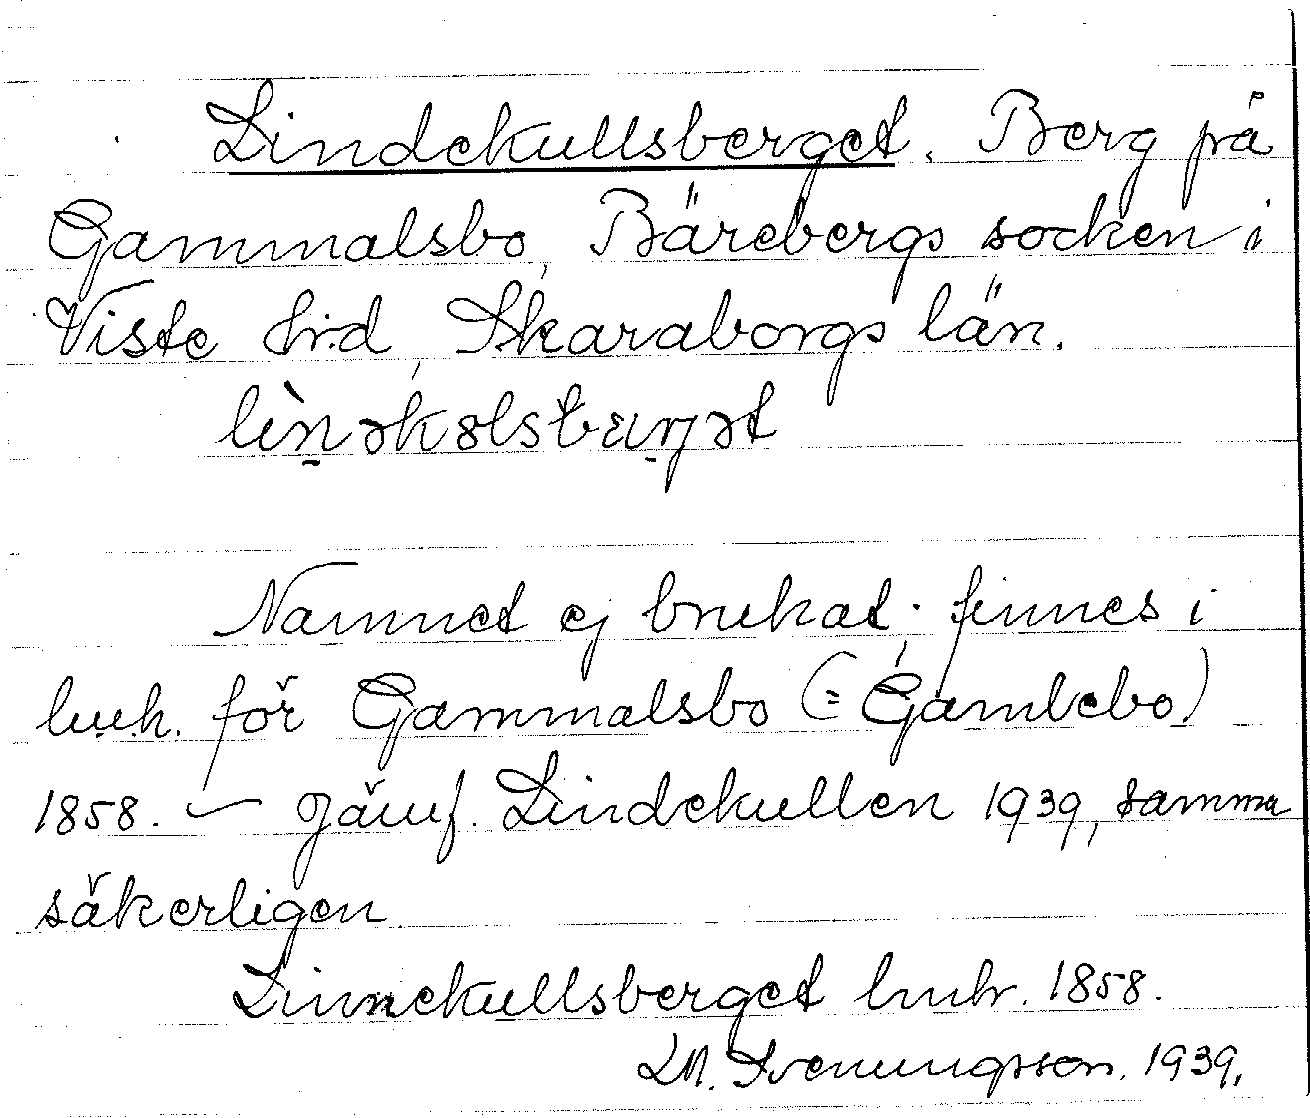 Lindekullsberget. Berg på
Gammalsbo, Bärebergs socken i
Viste hrd, Skaraborgs län.
Namnet ej brukat; finnes i
för Gammalsbo (= Gambebo)
1858. – Jämf. Lindekullen 1939, samma
säkerligen
Linnekullsberget lmhr. 1858.
LM. Svenungsson. 1939.